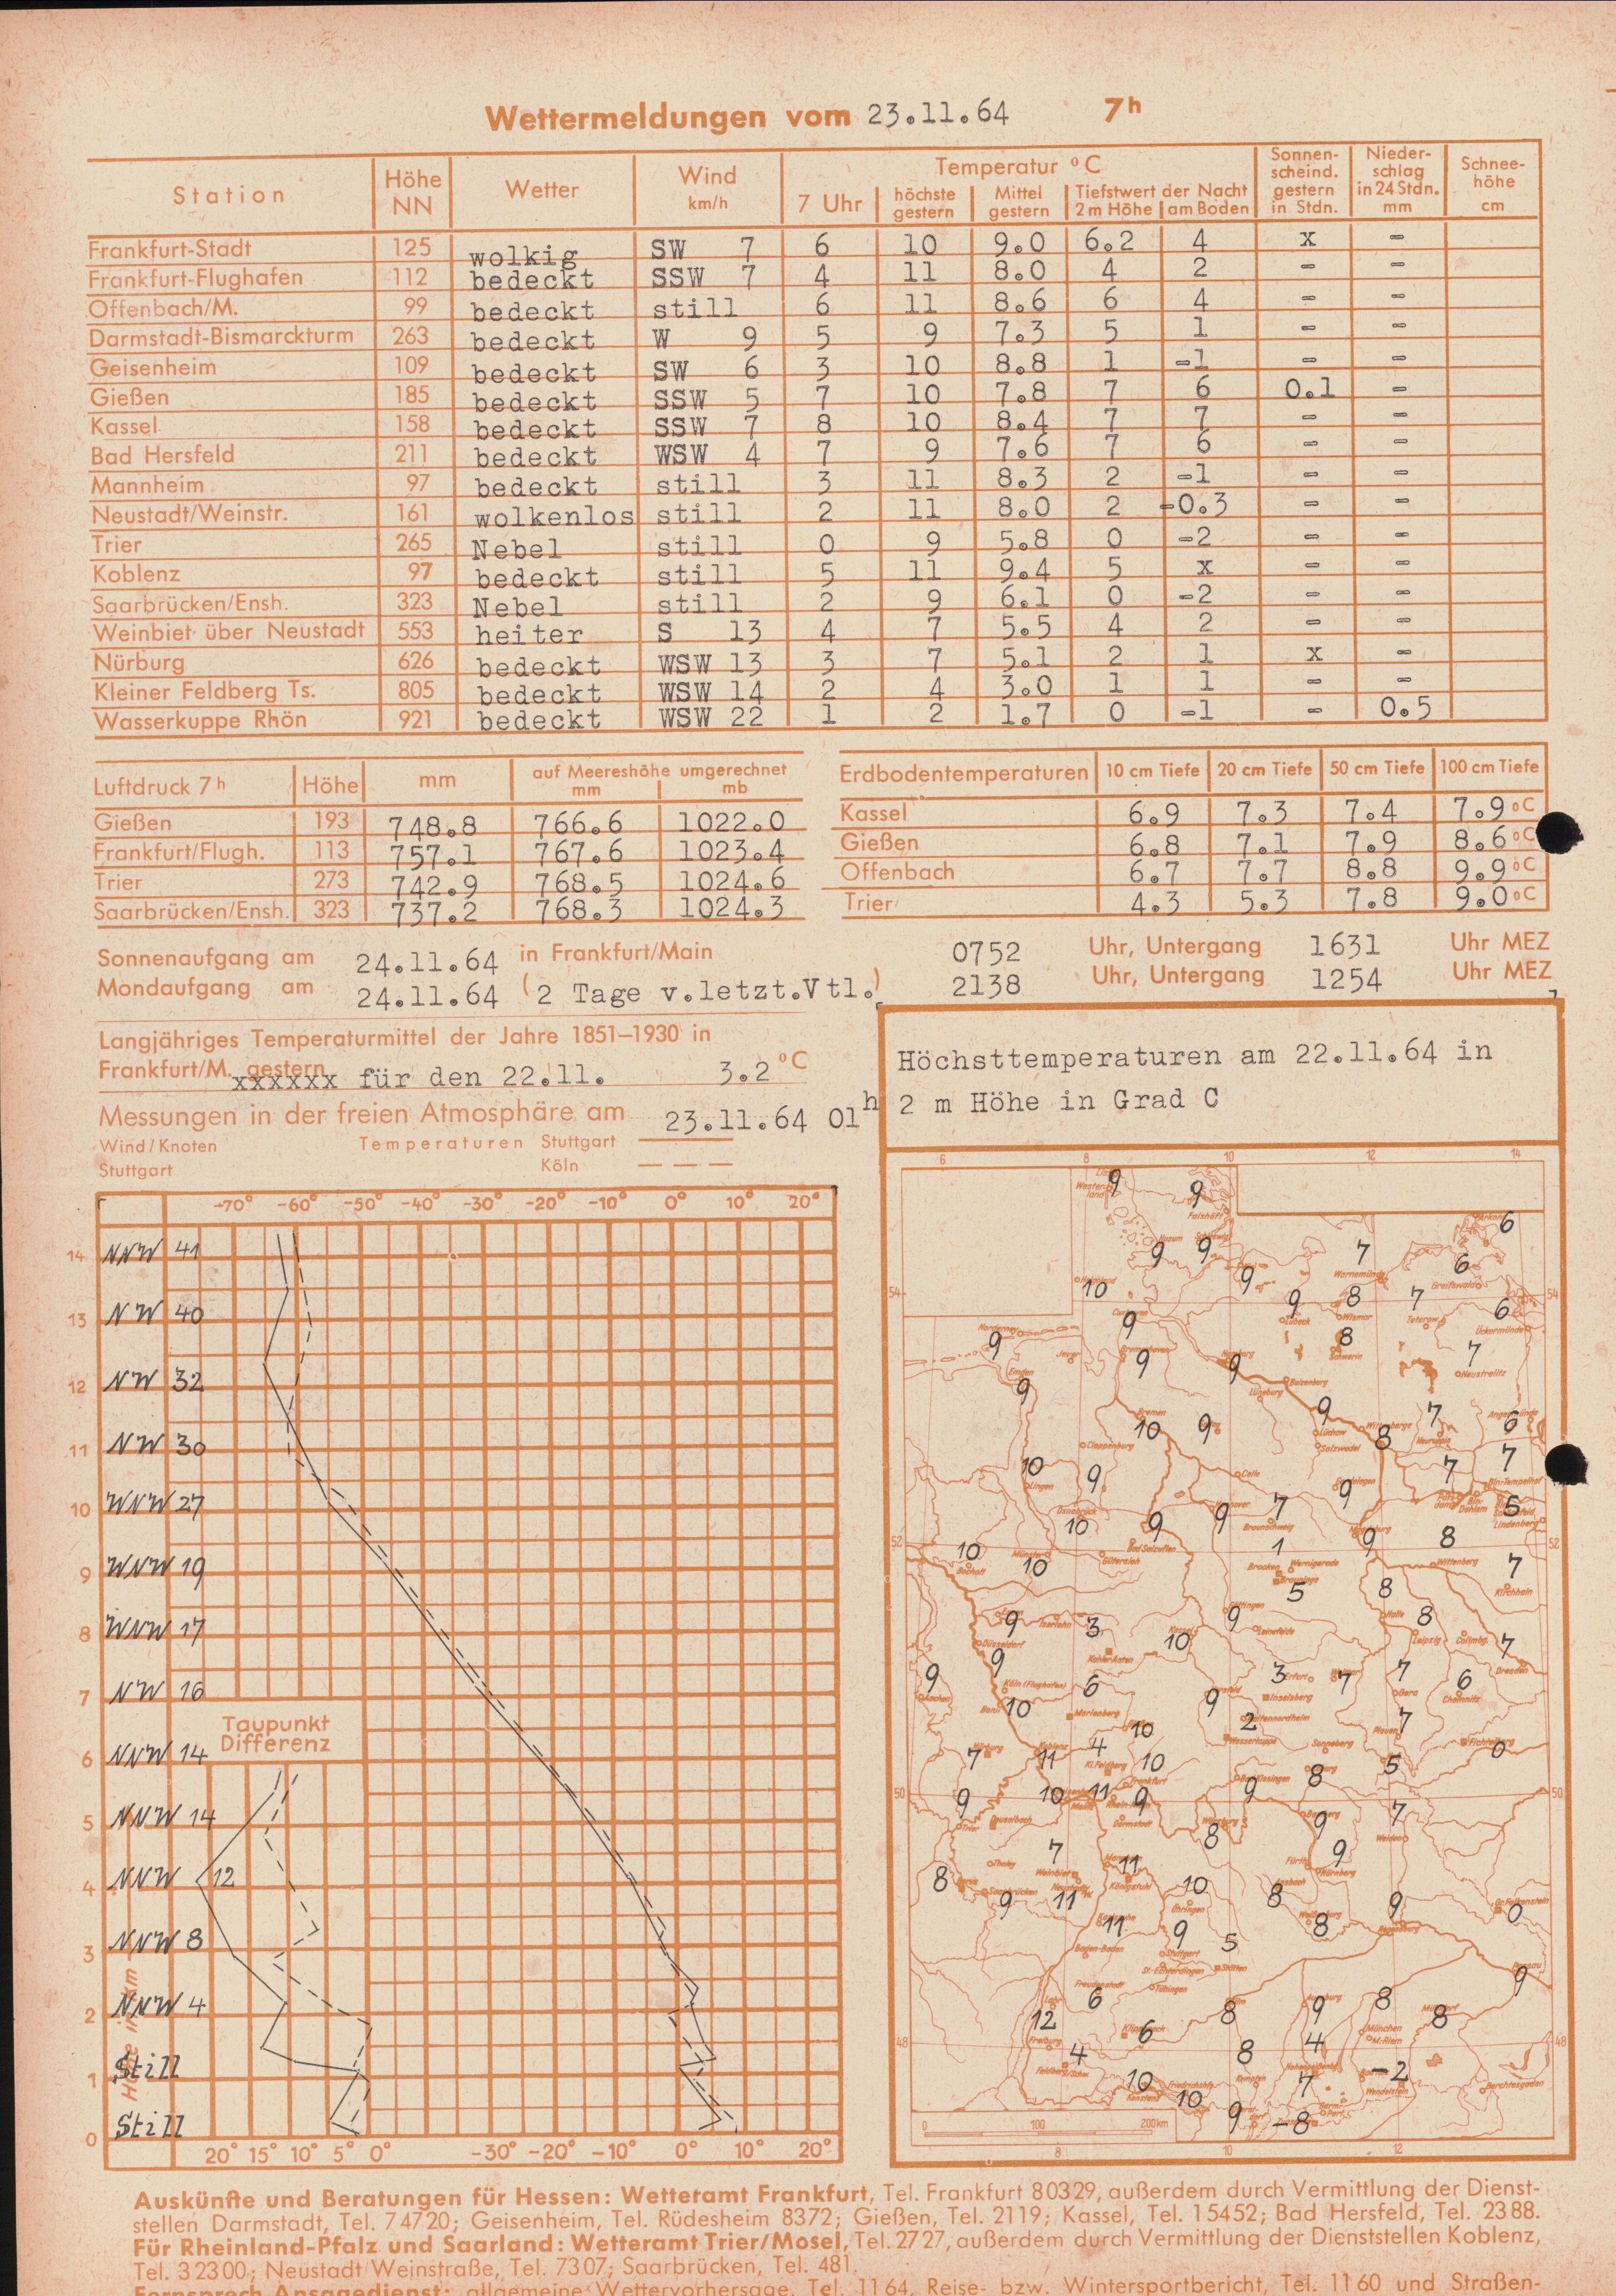 Wettermeldungen vom 23.11.64 7h
Station Höhe NN Wetter Wind km/h Temperatur °C Sonnen-scheind. gestern in Stdn. Nieder-schlag in 24 Stdn. mm Schnee-höhe cm
7 Uhr höchste gestern Mittel gestern Tiefstwert der Nacht 2 m Höhe am Boden
Frankfurt-Stadt 125 wolkig SW 7 6 10 9.0 6.2 4 x -
Frankfurt-Flughafen 112 bedeckt SSW 7 4 11 8.0 4 2 - -
Offenbach/M. 99 bedeckt still 6 11 8.6 6 4 - -
Darmstadt-Bismarckturm 263 bedeckt W 9 5 9 7.3 5 1 - -
Geisenheim 109 bedeckt SW 6 3 10 8.8 1 -1 - -
Gießen 185 bedeckt SSW 5 7 10 7.8 7 6 0.1 -
Kassel 158 bedeckt SSW 7 8 10 8.4 7 7 - -
Bad Hersfeld 211 bedeckt WSW 4 7 9 7.6 7 6 - -
Mannheim 97 bedeckt still 3 11 8.3 2 -1 - -
Neustadt/Weinstr. 161 wolkenlos still 2 11 8.0 2 -0.3 - -
Trier 265 Nebel still 0 9 5.8 0 -2 - -
Koblenz 97 bedeckt still 5 11 9.4 5 x - -
Saarbrücken/Ensh. 323 Nebel still 2 9 6.1 0 -2 - -
Weinbiet über Neustadt 553 heiter S 13 4 7 5.5 4 2 - -
Nürburg 626 bedeckt WSW 13 3 7 5.1 2 1 x -
Kleiner Feldberg Ts. 805 bedeckt WSW 14 2 4 3.0 1 1 - -
Wasserkuppe Rhön 921 bedeckt WSW 22 1 2 1.7 0 -1 - 0.5
Luftdruck 7h Höhe mm auf Meereshöhe umgerechnet mm mb
Gießen 193 748.8 766.6 1022.0
Frankfurt/Flugh. 113 757.1 767.6 1023.4
Trier 273 742.9 768.5 1024.6
Saarbrücken/Ensh. 323 737.2 768.3 1024.3
Erdbodentemperaturen 10 cm Tiefe 20 cm Tiefe 50 cm Tiefe 100 cm Tiefe
Kassel 6.9 7.3 7.4 7.9 °C
Gießen 6.8 7.1 7.9 8.6 °C
Offenbach 6.7 7.7 8.8 9.9 °C
Trier 4.3 5.3 7.8 9.0 °C
Sonnenaufgang am 24.11.64 in Frankfurt/Main 0752 Uhr, Untergang 1631 Uhr MEZ
Mondaufgang am 24.11.64 (2 Tage v.letzt.Vtl.) 2138 Uhr, Untergang 1254 Uhr MEZ
Langjähriges Temperaturmittel der Jahre 1851–1930 in
Frankfurt/M. gestern xxxxxx für den 22.11. 3.2 °C
Messungen in der freien Atmosphäre am 23.11.64 01h
Wind/Knoten Temperaturen Stuttgart
Stuttgart Köln
-70° -60° -50° -40° -30° -20° -10° 0° 10° 20°
14 NNW 41
13 NW 40
12 NW 32
11 NW 30
10 WNW 27
9 WNW 19
8 WNW 17
7 NW 16
Taupunkt
Differenz
6 NNW 14
5 NNW 14
4 NNW 12
3 NNW 8
2 NNW 4
1 Still
0 Still
Höhe in km
20° 15° 10° 5° 0° -30° -20° -10° 0° 10° 20°
Höchsttemperaturen am 22.11.64 in
2 m Höhe in Grad C
6 8 10 12 14
9 9 6
9 9 7 6
10 9 9 8 7 6
9 9 8 7
9 9
9 9 7 6
10 9 8 7
10 9 9 7 5
10 9 9 7 9 8
10 10 1 7
5 8
9 3 10 9 8 7
9 9 6 9 3 7 7 6
10 10 2 7
7 11 4 10 8 5 0
9 10 11 9 9 9 7
8 7 11 8 9
9 11 10 8 9 0
11 9 5 8 9
12 6 8 9 8 8
6 8 4
4 10 10 7 -2
9 -8
0 100 200 km
8 10 12
Auskünfte und Beratungen für Hessen: Wetteramt Frankfurt, Tel. Frankfurt 80329, außerdem durch Vermittlung der Dienst-
stellen Darmstadt, Tel. 74720; Geisenheim, Tel. Rüdesheim 8372; Gießen, Tel. 2119; Kassel, Tel. 15452; Bad Hersfeld, Tel. 2388.
Für Rheinland-Pfalz und Saarland: Wetteramt Trier/Mosel, Tel. 2727, außerdem durch Vermittlung der Dienststellen Koblenz,
Tel. 32300; Neustadt Weinstraße, Tel. 7307; Saarbrücken, Tel. 481.
Fernsprech-Ansagedienst: allgemeine Wettervorhersage, Tel. 1164, Reise- bzw. Wintersportbericht, Tel. 1160 und Straßen-